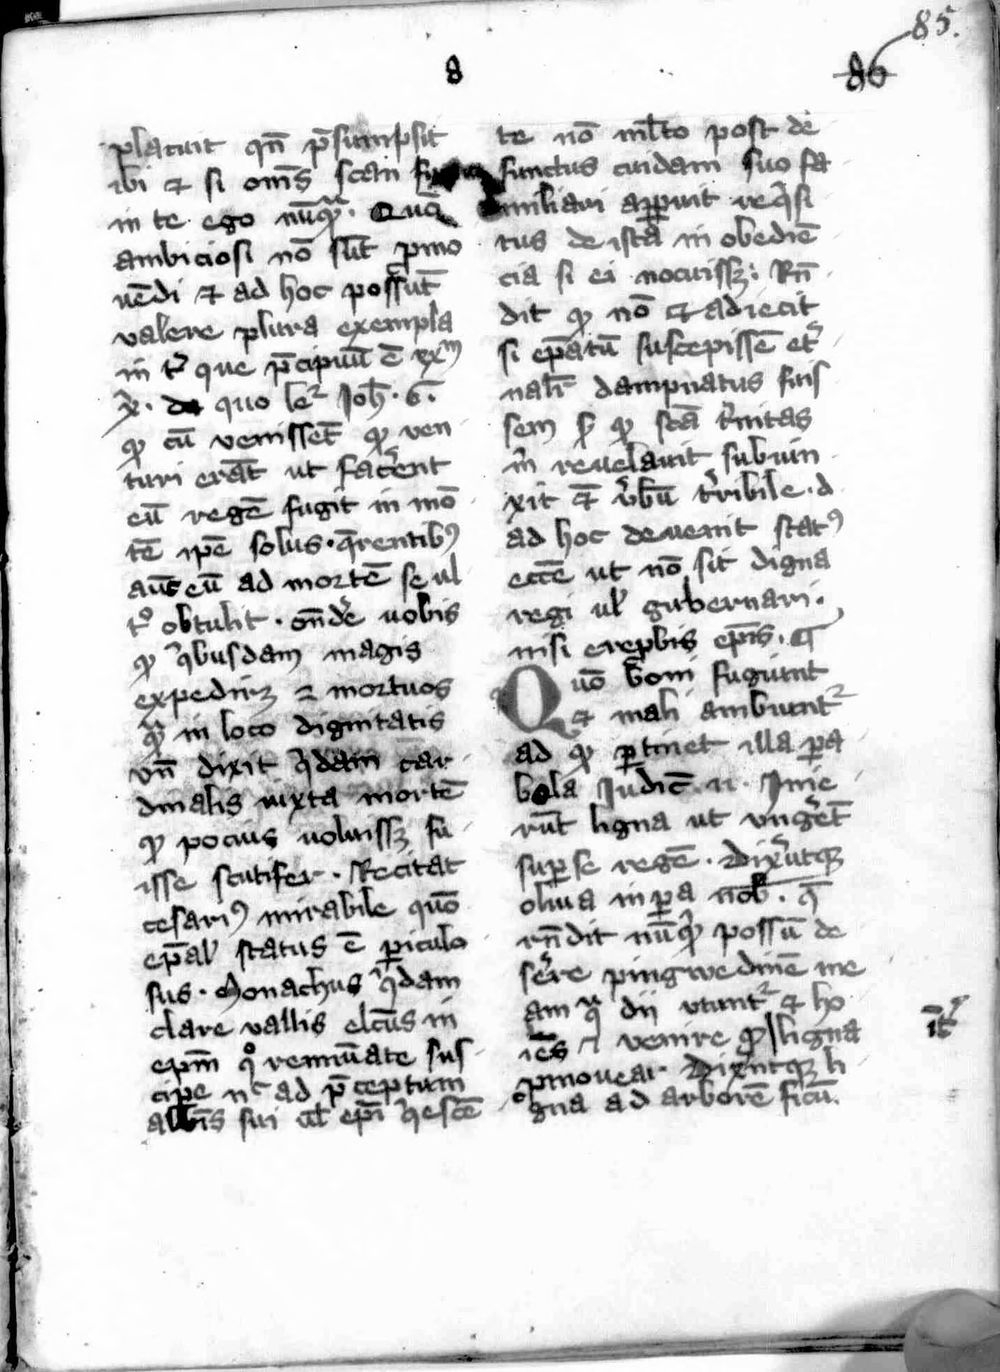 85.
86
8
placuit qn̄ p̄sumpsit
ibi ⁊ si om̄s scan
in te ego nūqᷓ. Quā
ambiciosi nō sūt ꝓmo
uēdi ⁊ ad hoc possūt
valere plura exempla
in t͛ que p̄cipuū ē exᵐ
x̄. de quo leᷣ Joh̄. 6.
ꝙ cū venissēt ꝙ ven
turi erāt ut fac͛ent
eū regē fugit in mō
tē ip̄e solus. q̄rentibꝰ
aūt eū ad mortē se ul
tͦ obtulit. on̄de͛ uobis
ꝙ qͥbusdam magis
expediuꝫ ⁊ mortuos
qᷓ in loco dignitatis
vn̄ dixit qͥdam car
dinalis iuxta mortē
ꝙ pocius uoluissꝫ fu
isse scutifer. Recitat
cesariꝰ mirabile quō
ep̄al' status ē ꝑiculo
sus. Monachus qͥdam
clare vallis elcūs in
epm̄ qͦ renuēte sus
cipe n͛ ad p̄ceptum
abbīs sui ul̄ ep̄i qͥescē
te nō ml̄to post de
functus cuidam suo fa
miliari apparuit reqͥsi
tus de ista in obediē
cia si ei nocuissꝫ. Rn̄
dit ꝙ nō ⁊ adiecit
si ep̄atū suscepissē et͛
nal͛r dampnatus fuis
sem ꝙ sc̄a t͛nitas
m̄ reuelauit subiun
xit ⁊ v͛bū t͛ribile. d
ad hoc deuenit statꝰ
ecc̄e ut nō sit digna
regi ul' gubernari.
nisi a rep̄bis ep̄is. ¶
Quō boni fugiunt
⁊ mali ambiuntᷣ
ad ꝙ ꝑtinet illa ꝑa
bola Judic̄. 9. Iuie
rūt ligna ut vng͛ēt
suꝑ se regē. Dix͛utqꝫ
oliua inꝑa nob̄. q̄
rn̄dit nūqͥd possū de
s͛ere pingwedinē me
am qᷓ dii utuntᷣ ⁊ ho
iēs ⁊ venire ꝙ ligna
ꝓmouear. Dix͛ntqꝫ li
gna ad arborē ficū.